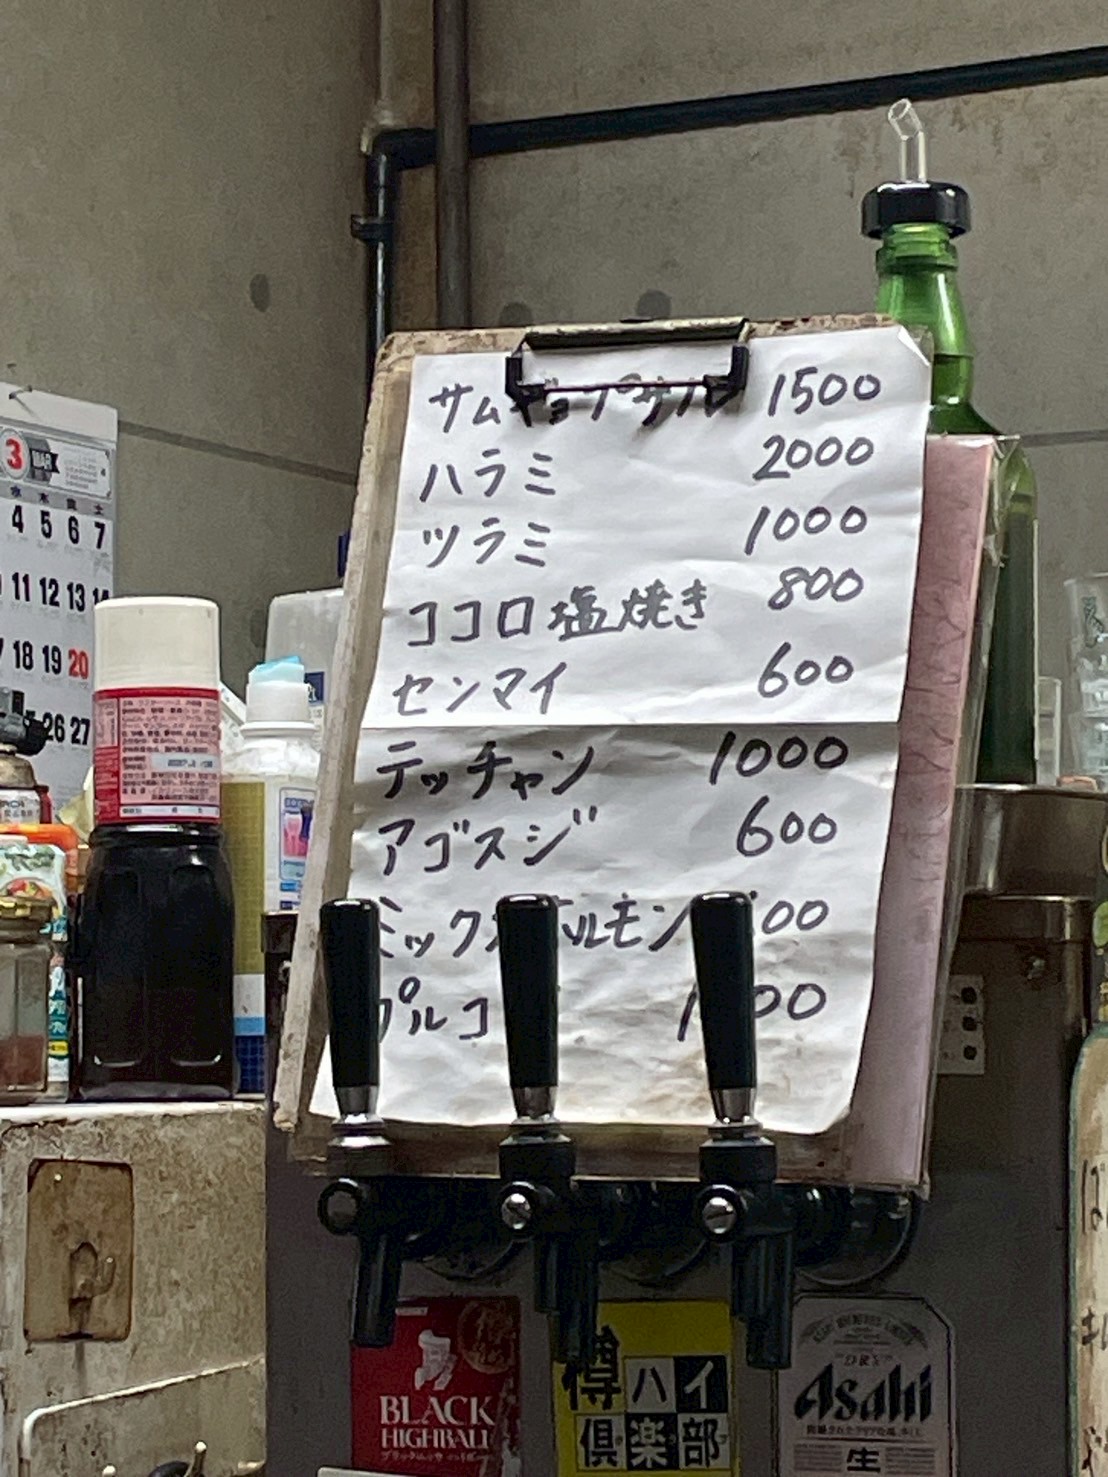 サムギョプサル 1500
ハラミ 2000
ツラミ 1000
ココロ塩焼き 800
センマイ 600
テッチャン 1000
アゴスジ 600
ミックスホルモン 00
プルコ 00
3 MAR
水 木 金 土
4 5 6 7
11 12 13 14
18 19 20
26 27
BLACK
HIGHBALL
樽ハイ
倶楽部
DRY
Asahi
生